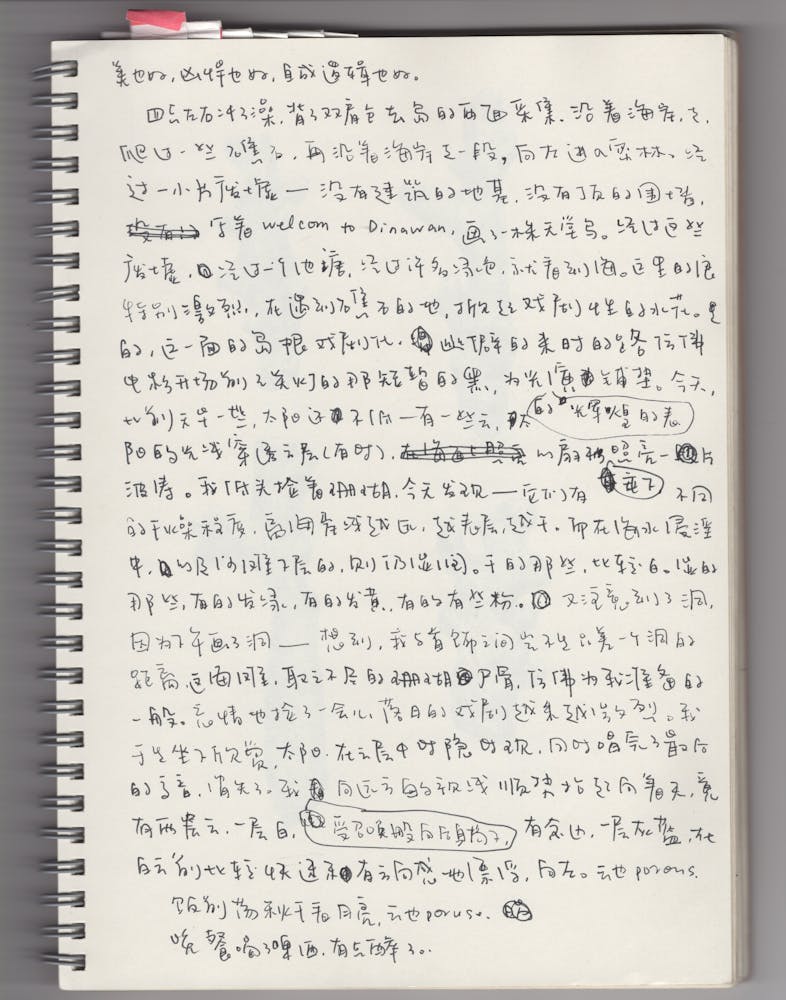 美也好，凶悍也好，自成逻辑也好。
四点左右冲了澡，背了双肩包去岛的西面采集。沿着海岸走，
爬过一些礁石，再沿着海岸走一段，向左进入密林。经
过一小片废墟——没有建筑的地基，没有顶的围墙，
写着 welcom to Dinawan，画了一株天堂鸟。经过这些
废墟，经过一个池塘，经过许多绿色，就看到海。这里的浪
特别激烈，在遇到礁石的地，掀起戏剧性的水花。是
的，这一面的岛很戏剧化。幽僻的来时的路仿佛
电影开场前了关灯的那短暂的黑，为光铺垫。今天，
比前天早一些，太阳还不低——有一些云，的辉煌的太
阳的光线穿透云层（有时），的扇被照亮一片
波涛。我低头捡着珊瑚，今天发现——它们有不同
的干燥程度，离海岸线越远，越表层，越干。而在海水浸淫
中，以及沙滩下层的，则仍湿润。干的那些，比较白。湿的
那些，有的发绿，有的发黄，有的有些粉。又注意到了洞，
因为下午画了洞——想到，我与首饰之间岂不是只差一个洞的
距離，这海滩，取之不尽的珊瑚骨，仿佛为我准备的
一般。忘情地捡了一会儿，落日的戏剧越来越激烈。我
于是坐下欣赏，太阳在云层中时隐时现，同时唱完了最后
的高音，消失了。我向远方的视线顺势抬起向着天，竟
有两层云，一层白，受召唤般向后，有念也，一层灰蓝，在
白云前比较快速有方向感地漂浮，向左。云也 porous.
饭前荡秋千看月亮，云也 poruse.
晚餐喝了啤酒，有点醉了。